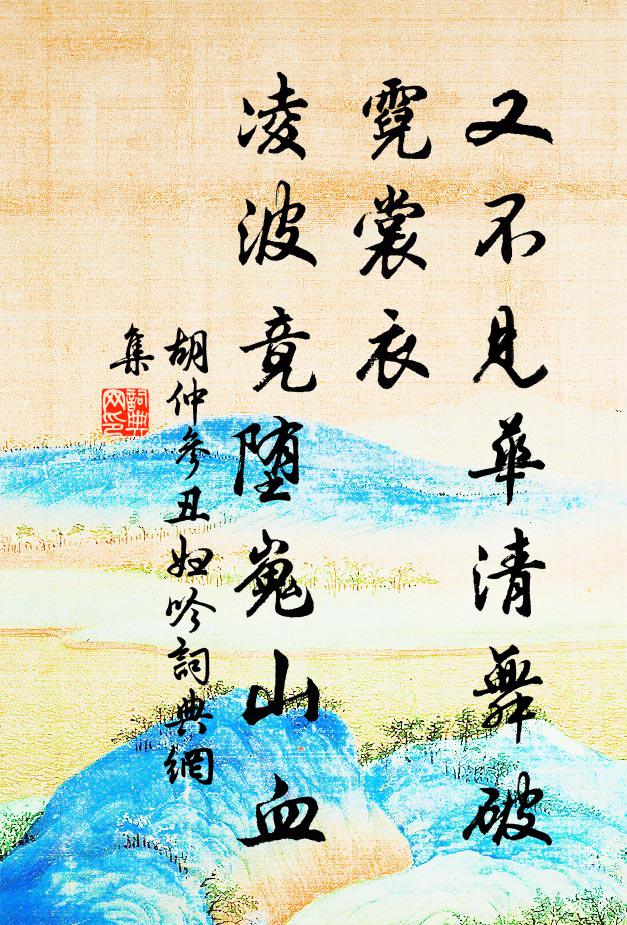 又不見華清舞破
霓裳衣
凌波竟堕嵬山血
胡仲參丑妲吟詞典網
集
詞典
网印